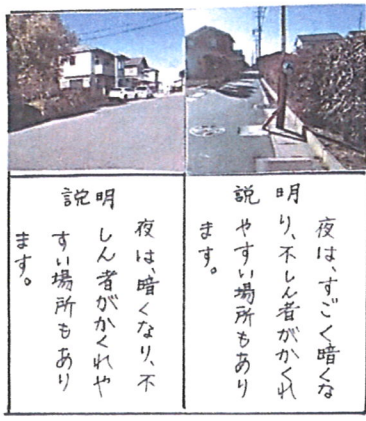 説明
夜は、すごく暗くな
り、不しん者がかくれ
やすい場所もあり
ます。
説明
夜は、暗くなり、不
しん者がかくれや
すい場所もあり
ます。